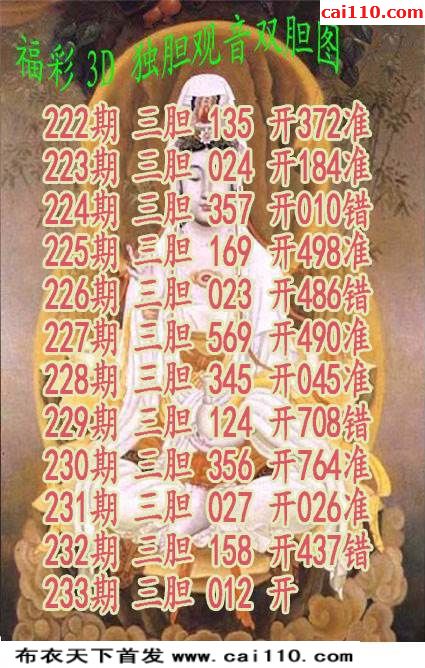 cai110.com
福彩3D 独胆观音双胆图
222期 三胆 135 开372准
223期 三胆 024 开184准
224期 三胆 357 开010错
225期 三胆 169 开498准
226期 三胆 023 开486错
227期 三胆 569 开490准
228期 三胆 345 开045准
229期 三胆 124 开708错
230期 三胆 356 开764准
231期 三胆 027 开026准
232期 三胆 158 开437错
233期 三胆 012 开
布衣天下首发 www.cai110.com